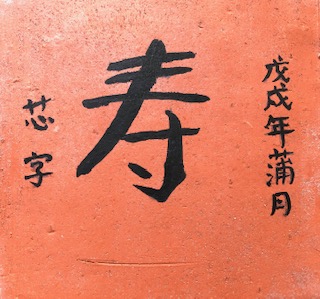 戊戌年蒲月
寿
芯字